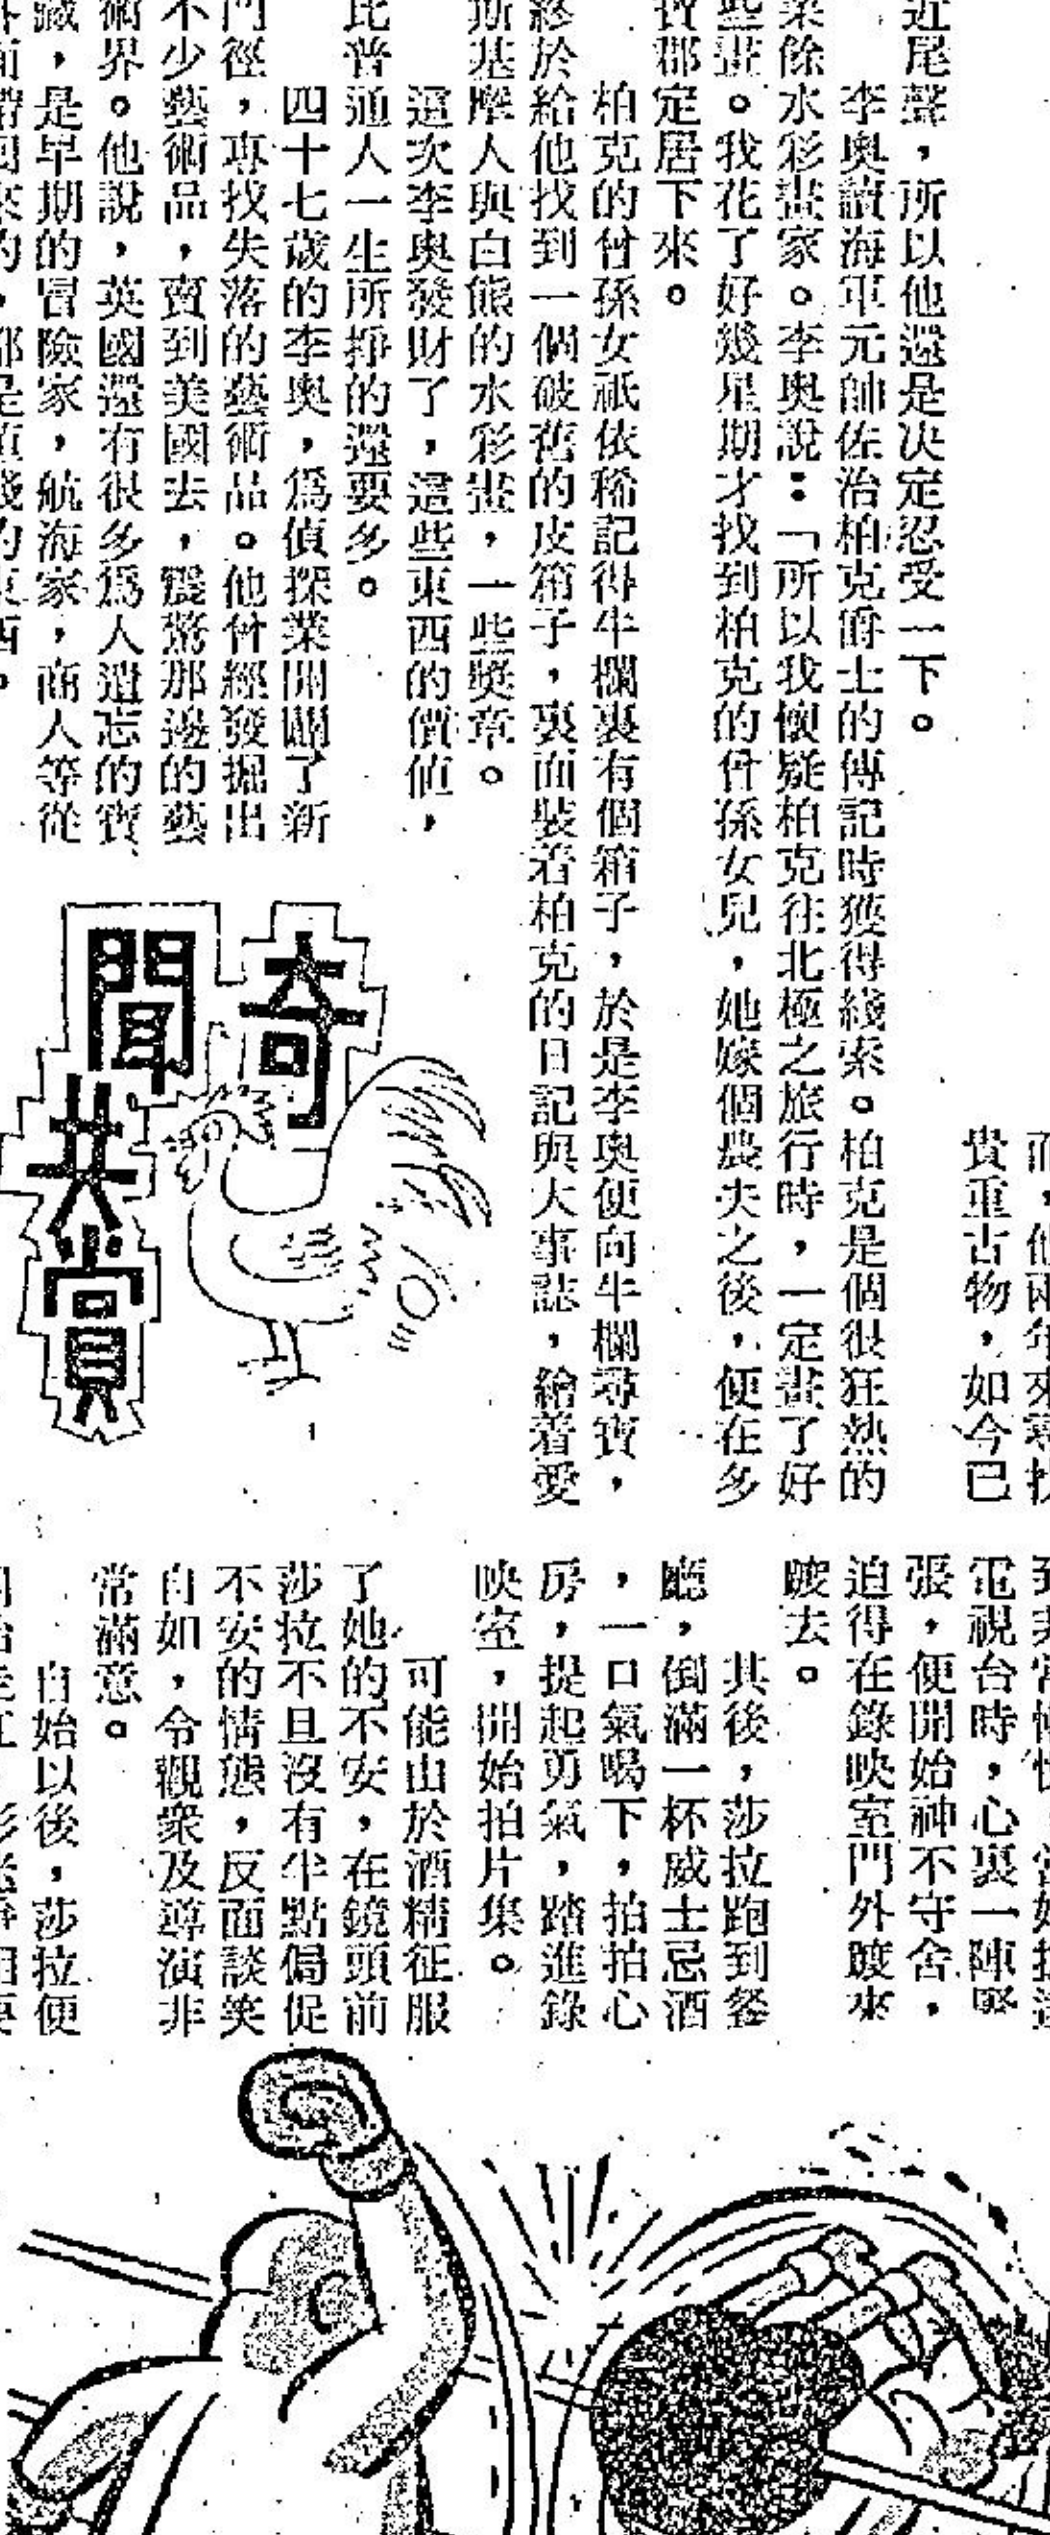 而，他兩年來尋找
貴重古物，如今已
近尾聲，所以他還是決定忍受一下。
李奧讀海軍元帥佐治柏克爵士的傳記時獲得綫索。柏克是個很狂熱的
業餘水彩畫家。李奧說：「所以我懷疑柏克往北極之旅行時，一定畫了好
些畫。我花了好幾星期才找到柏克的曾孫女兒，她嫁個農夫之後，便在多
賓郡定居下來。
柏克的曾孫女祇依稀記得牛欄裏有個箱子，於是李奧便向牛欄尋寶，
終於給他找到一個破舊的皮箱子，裏面裝着柏克的日記與大事誌，繪着愛
斯基摩人與白熊的水彩畫，一些獎章。
這次李奧發財了，這些東西的價值，
比普通人一生所掙的還要多。
四十七歲的李奧，爲偵探業開闢了新
門徑，專找失落的藝術品。他曾經發掘出
不少藝術品，賣到美國去，震驚那邊的藝
術界。他說，英國還有很多爲人遺忘的寶
藏，是早期的冒險家，航海家，商人等從
外面帶回來的，都是值錢的東西。
奇聞共賞
電視台時，心裏一陣緊
張，便開始神不守舍，
迫得在錄映室門外踱來
踱去。
其後，莎拉跑到餐
廳，倒滿一杯威士忌酒
，一口氣喝下，拍拍心
房，提起勇氣，踏進錄
映室，開始拍片集。
可能由於酒精征服
了她的不安，在鏡頭前
莎拉不但沒有半點侷促
不安的情態，反面談笑
自如，令觀衆及導演非
常滿意。
自始以後，莎拉便